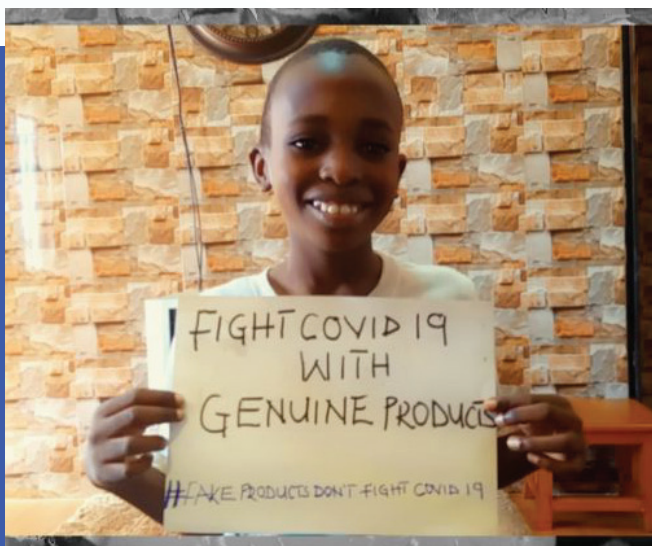 FIGHT COVID 19
WITH
GENUINE PRODUCTS
#FAKE PRODUCTS DON'T FIGHT COVID 19